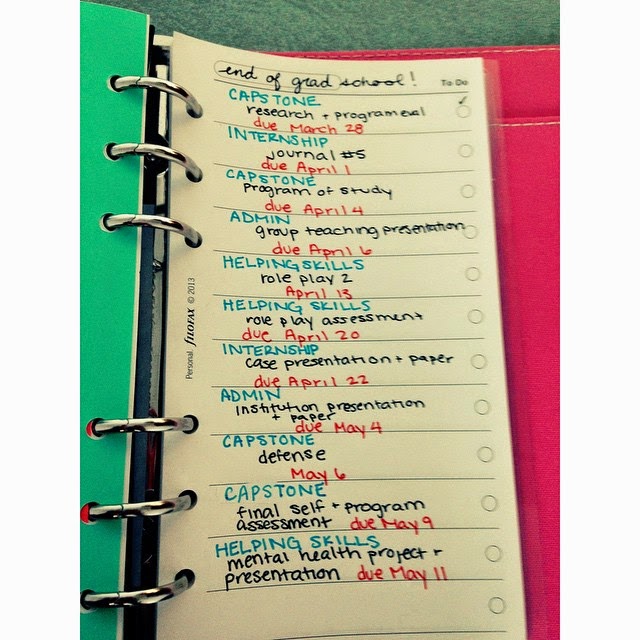 end of grad school!
To Do
CAPSTONE
research + program eval
due March 28
INTERNSHIP
journal #5
due April 1
CAPSTONE
Program of study
due April 4
ADMIN
group teaching presentation
due April 6
HELPING SKILLS
role play 2
April 13
HELPING SKILLS
role play assessment
due April 20
INTERNSHIP
case presentation + paper
due April 22
ADMIN
institution presentation
+ paper
due May 4
CAPSTONE
defense
May 6
CAPSTONE
final self + program
assessment due May 9
HELPING SKILLS
mental health project +
presentation due May 11
Personal. filofax © 2013